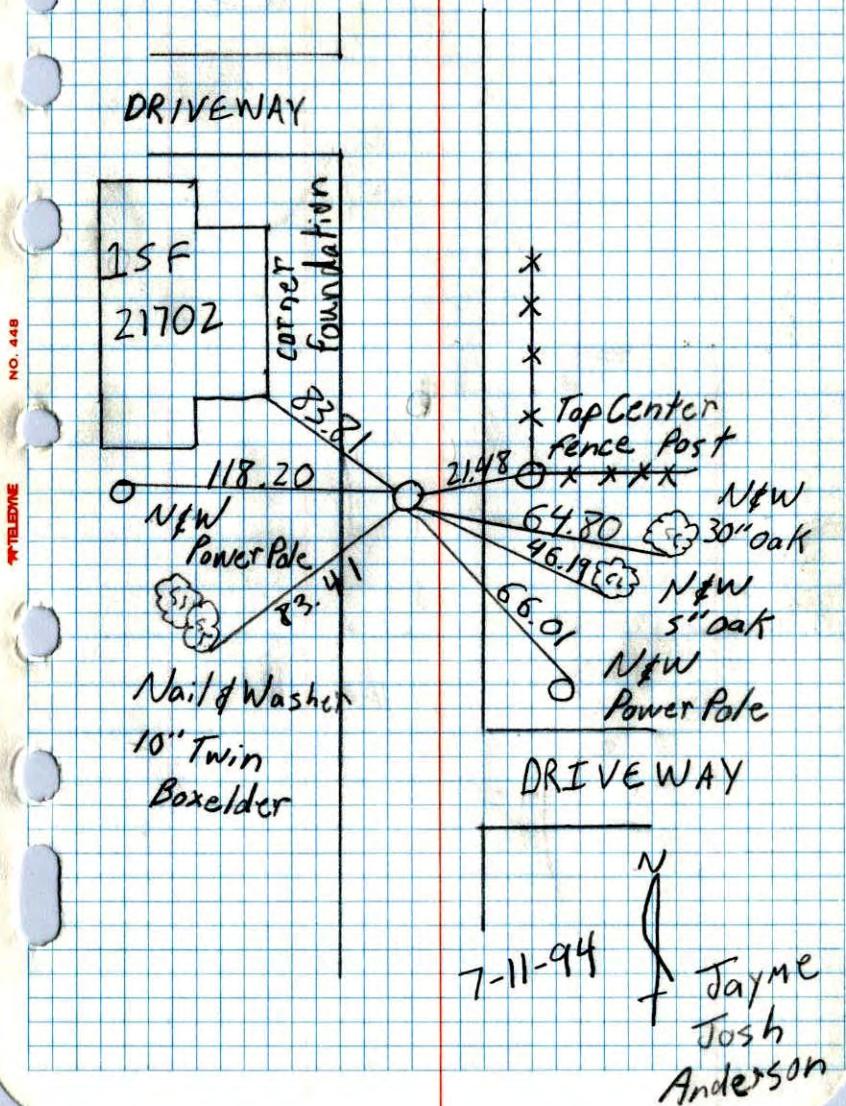 DRIVEWAY
1SF
21702
corner
foundation
NO. 448
TELEDYNE
83.81
118.20
N&W
Power Pole
83.41
Nail & Washer
10" Twin
Boxelder
Top Center
fence Post
21.48
64.80
N&W
30" oak
46.19
N&W
5" oak
66.01
N&W
Power Pole
DRIVEWAY
N
7-11-94
Jayme
Josh
Anderson